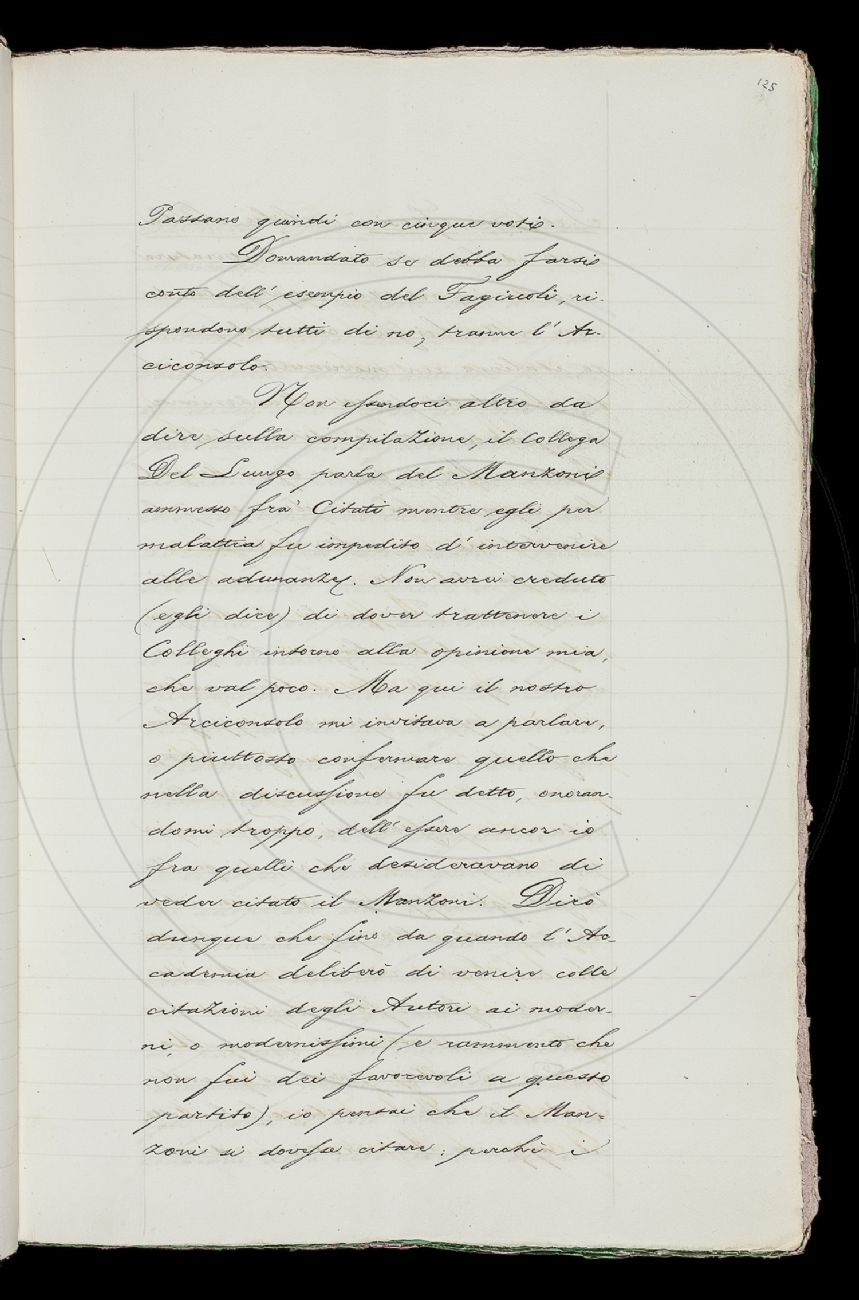 125
Passano quindi con cinque voti.
Domandato se debba farsi
conto dell' esempio del Fagiuoli, ri-
spondono tutti di no, tranne l' Ar-
ciconsolo.
Non essendoci altro da
dire sulla compilazione, il Collega
Del Lungo parla del Manzoni
ammesso fra' Citati mentre egli per
malattia fu impedito d' intervenire
alle adunanze. Non avrei creduto
(egli dice) di dover trattenere i
Colleghi intorno alla opinione mia,
che val poco. Ma qui il nostro
Arciconsolo mi invitava a parlare,
o piuttosto confermare quello che
nella discussione fu detto, onoran-
domi troppo, dell' essere ancor io
fra quelli che desideravano di
veder citato il Manzoni. Dirò
dunque che fino da quando l' Ac-
cademia deliberò di venire colle
citazioni degli Autori ai moder-
ni, o modernissimi (e rammento che
non fui dei favorevoli a questo
partito), io pensai che il Man-
zoni si dovesse citare; perchè i